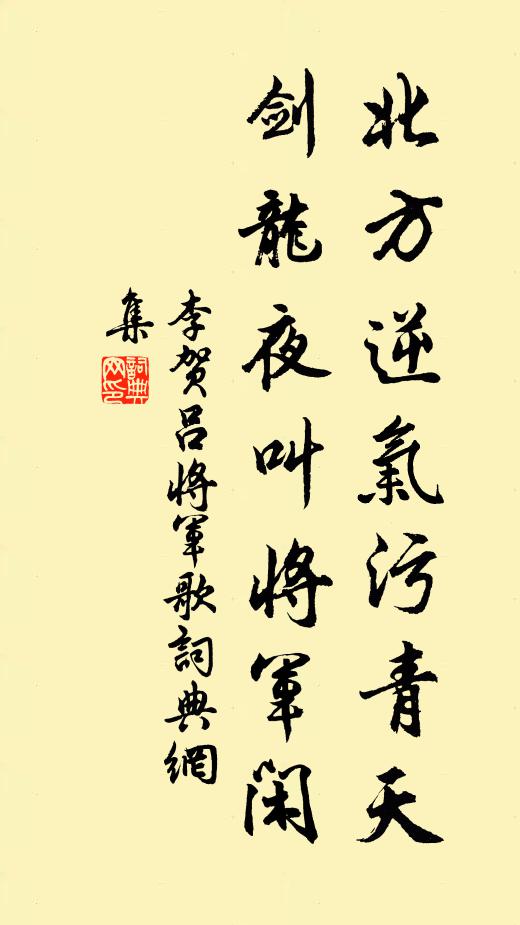 北方逆氣污青天
剑龍夜叫將軍闲
李贺吕将軍歌詞典網
集
詞典
网印